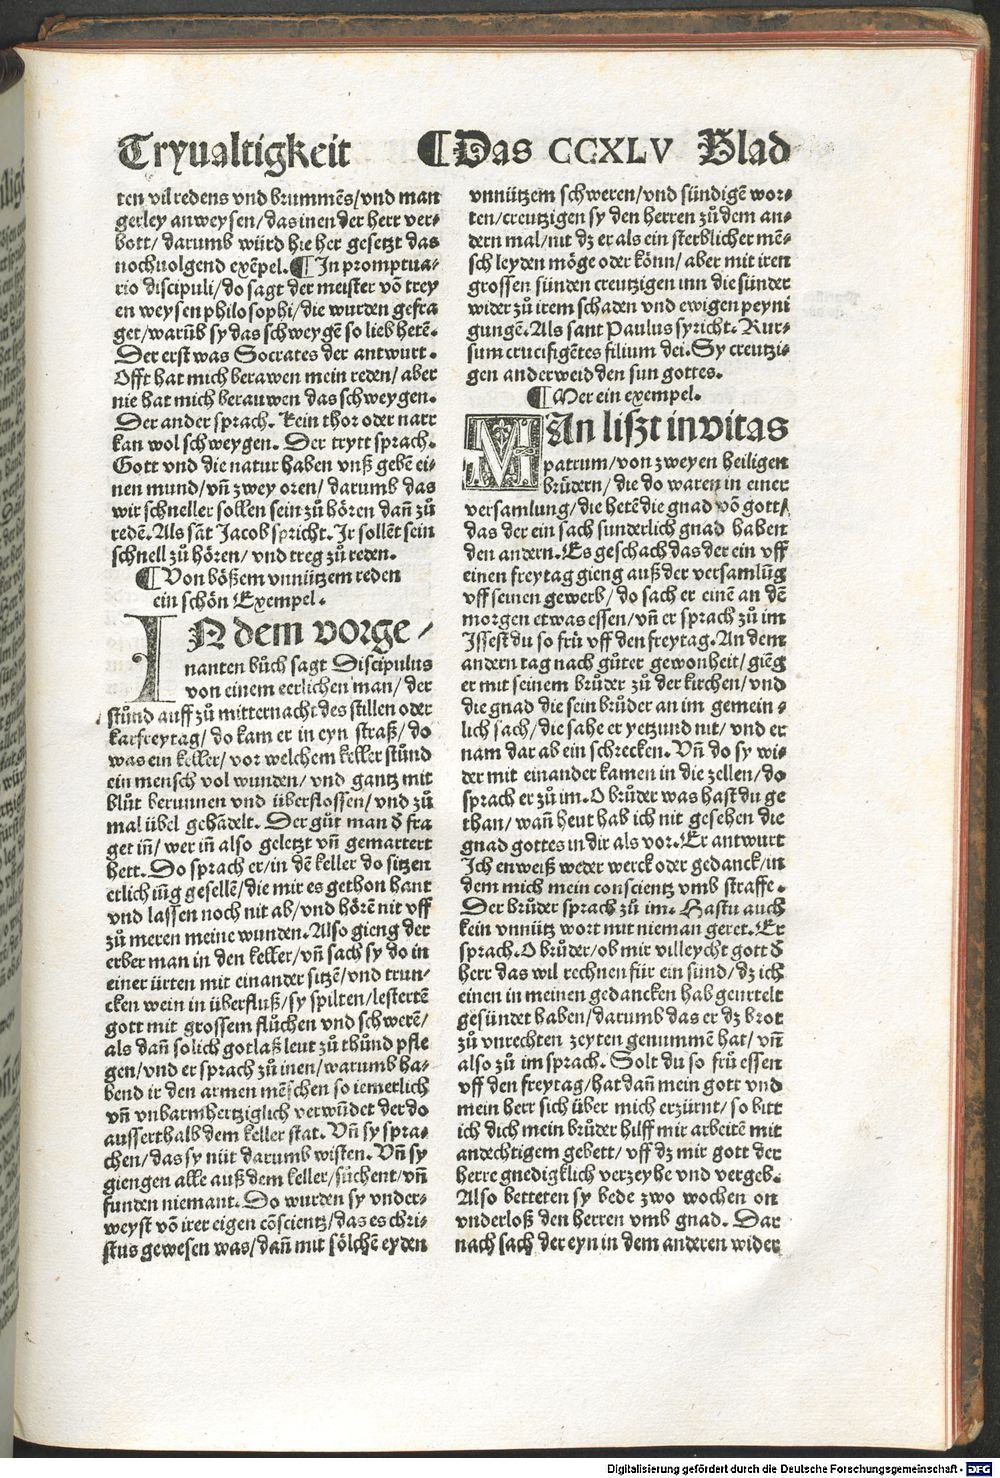 Tryualtigkeit ¶Das CCXLV Blad
ten vil redens vnd brummẽs/vnd man
gerley anweysen/das inen der herr ver⸗
bott/ darumb würd hie her gesetzt das
nochuolgend exẽpel.¶In promptua⸗
rio discipuli/do sagt der meister võ trey
en weysen philosophi/die wurden gefra
get/warũb sy das schweygẽ so lieb hetẽ.
Der erst was Socrates der antwurt.
Offt hat mich berawen mein reden/ aber
nie hat mich berauwen das schweygen.
Der ander sprach. Kein thor oder narr
kan wol schweygen. Der trytt sprach.
Gott vnd die natur haben vnß gebẽ ei⸗
nen mund/vñ zwey oren/ darumb das
wir schneller sollen sein zů hören dañ zů
redẽ. Als sãt Jacob spricht. Ir sollẽt sein
schnell zů hören/ vnd treg zů reden.
¶Von bößem vnnützem reden
ein schön Exempel.
IN dem vorge⸗
nanten bůch sagt Discipulus
von einem eerlichen man/ der
stůnd auff zů mitternacht des stillen oder
karfreytag/ do kam er in eyn straß/ do
was ein keller/ vor welchem keller stůnd
ein mensch vol wunden/ vnd gantz mit
blůt berunnen vnd überflossen/ vnd zů
mal übel gehãdelt. Der gůt man ð fra
get iñ/ wer iñ also geletzt vñ gemartert
hett. Do sprach er/ in dẽ keller do sitzen
etlich iũg gesellẽ/die mir es gethon hant
vnd lassen noch nit ab/vnd hörẽ nit vff
zů meren meine wunden. Also gieng der
erber man in den keller/ vñ sach sy do in
einer ürten mit einander sitzẽ/vnd trun⸗
cken wein in überfluß/sy spilten/lestertẽ
gott mit grossem flůchen vnd schwerẽ/
als dañ solich gotlaß leut zů thůnd pfle
gen/vnd er sprach zů inen/warumb ha⸗
bend ir den armen mẽschen so iemerlich
vñ vnbarmhertziglich verwũdet der do
ausserthalb dem keller stat. Vñ sy spra⸗
chen/das sy nüt darumb wisten. Vñ sy
giengen alle auß dem keller/sůchent/vñ
funden niemant. Do wurden sy vnder⸗
weyst võ irer eigen cõscientz/das es chri⸗
stus gewesen was/dañ mit sölchẽ eyden
vnnützem schweren/vnd sündigẽ wor⸗
ten/creutzigen sy den herren zů dem an⸗
dern mal/nit dz er als ein sterblicher mẽ⸗
sch leyden möge oder könn/ aber mit iren
grossen sünden creutzigen inn die sünder
wider zů irem schaden vnd ewigen peyni
gungẽ. Als sant Paulus syricht. Rur⸗
sum crucifigẽtes filium dei. Sy creutzi⸗
gen anderweid den sun gottes.
¶Mer ein exempel.
MAn liszt in vitas
patrum/von zweyen heiligen
brůdern/ die do waren in einer
versamlung/die hetẽ die gnad võ gott/
das der ein sach sunderlich gnad haben
den andern. Es geschach das der ein vff
einen freytag gieng auß der versamlũg
vff seinen gewerb/ do sach er einẽ an dẽ
morgen etwas essen/ vñ er sprach zů im
Issest du so frů vff den freytag. An dem
andern tag nach gůter gewonheit/ giẽg
er mit seinem brůder zů der kirchen/ vnd
die gnad die sein brůder an im gemein⸗
lich sach/ die sahe er yetzund nit/ vnd er
nam dar ab ein schrecken. Vñ do sy wi⸗
der mit einander kamen in die zellen/ do
sprach er zů im. O brůder was hast du ge
than/ wañ heut hab ich nit gesehen die
gnad gottes in dir als vor. Er antwurt
Ich enweiß weder werck oder gedanck/in
dem mich mein conscientz vmb straffe.
Der brůder sprach zů im. Hastu auch
kein vnnütz wort mit nieman geret. Er
sprach. O brůder/ ob mir villeycht gott ð
herr das wil rechnen für ein sünd/ dz ich
einen in meinen gedancken hab geurtelt
gesündet haben/ darumb das er dz brot
zů vnrechten zeyten genummẽ hat/ vñ
also zů im sprach. Solt du so frů essen
vff den freytag/ hat dañ mein gott vnd
mein herr sich über mich erzürnt/ so bitt
ich dich mein brůder hilff mir arbeitẽ mit
andechtigem gebett/ vff dz mir gott der
herre gnedigklich verzeyhe vnd vergeb.
Also betteten sy bede zwo wochen on
vnderloß den herren vmb gnad. Dar
nach sach der eyn in dem anderen wider
Digitalisierung gefördert durch die Deutsche Forschungsgemeinschaft - DFG